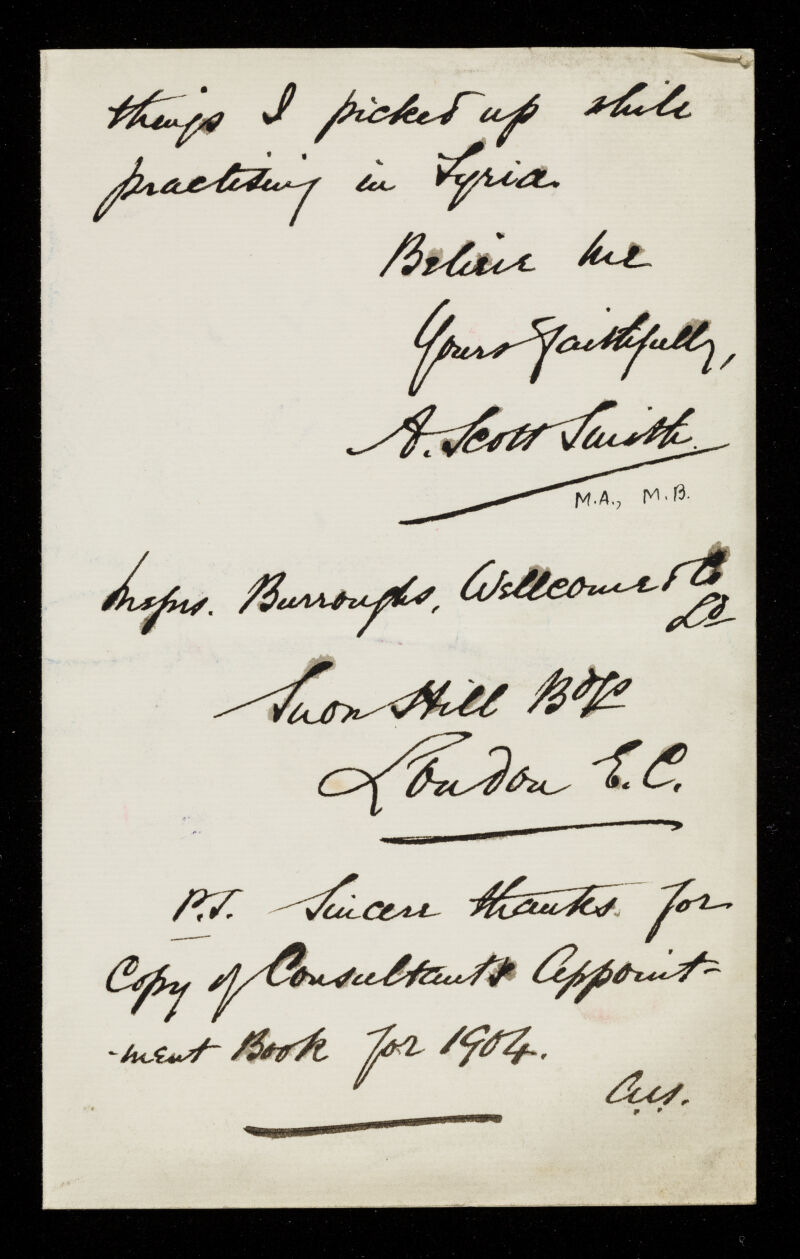 things I picked up while
practising in Syria.
Believe me
Yours faithfully,
A. Scott Smith.
M.A., M.B.
Messrs. Burroughs, Wellcome & Co
Ld
Snow Hill Bdgs
London E.C.
P.S. Sincere thanks for
Copy of Consultants Appoint-
-ment Book for 1904.